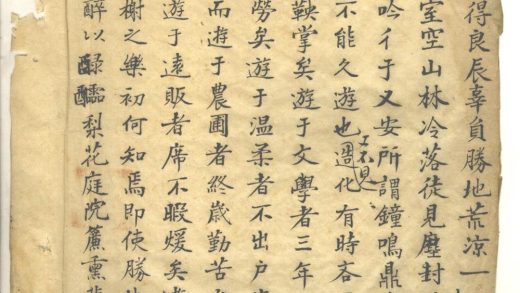 得良辰辜負勝地荒凉一
室空山林冷落徒見塵封
吟彳亍又安所謂鐘鳴鼎
不能久遊也化有時吝
鞅掌矣遊于文學者三年
勞矣遊于温柔者不出戶
而遊于農圃者終歲勤苦
遊于遠販者席不暇煖矣
榭之樂初何知焉即使勝
醉以醁梨花庭院簾熏